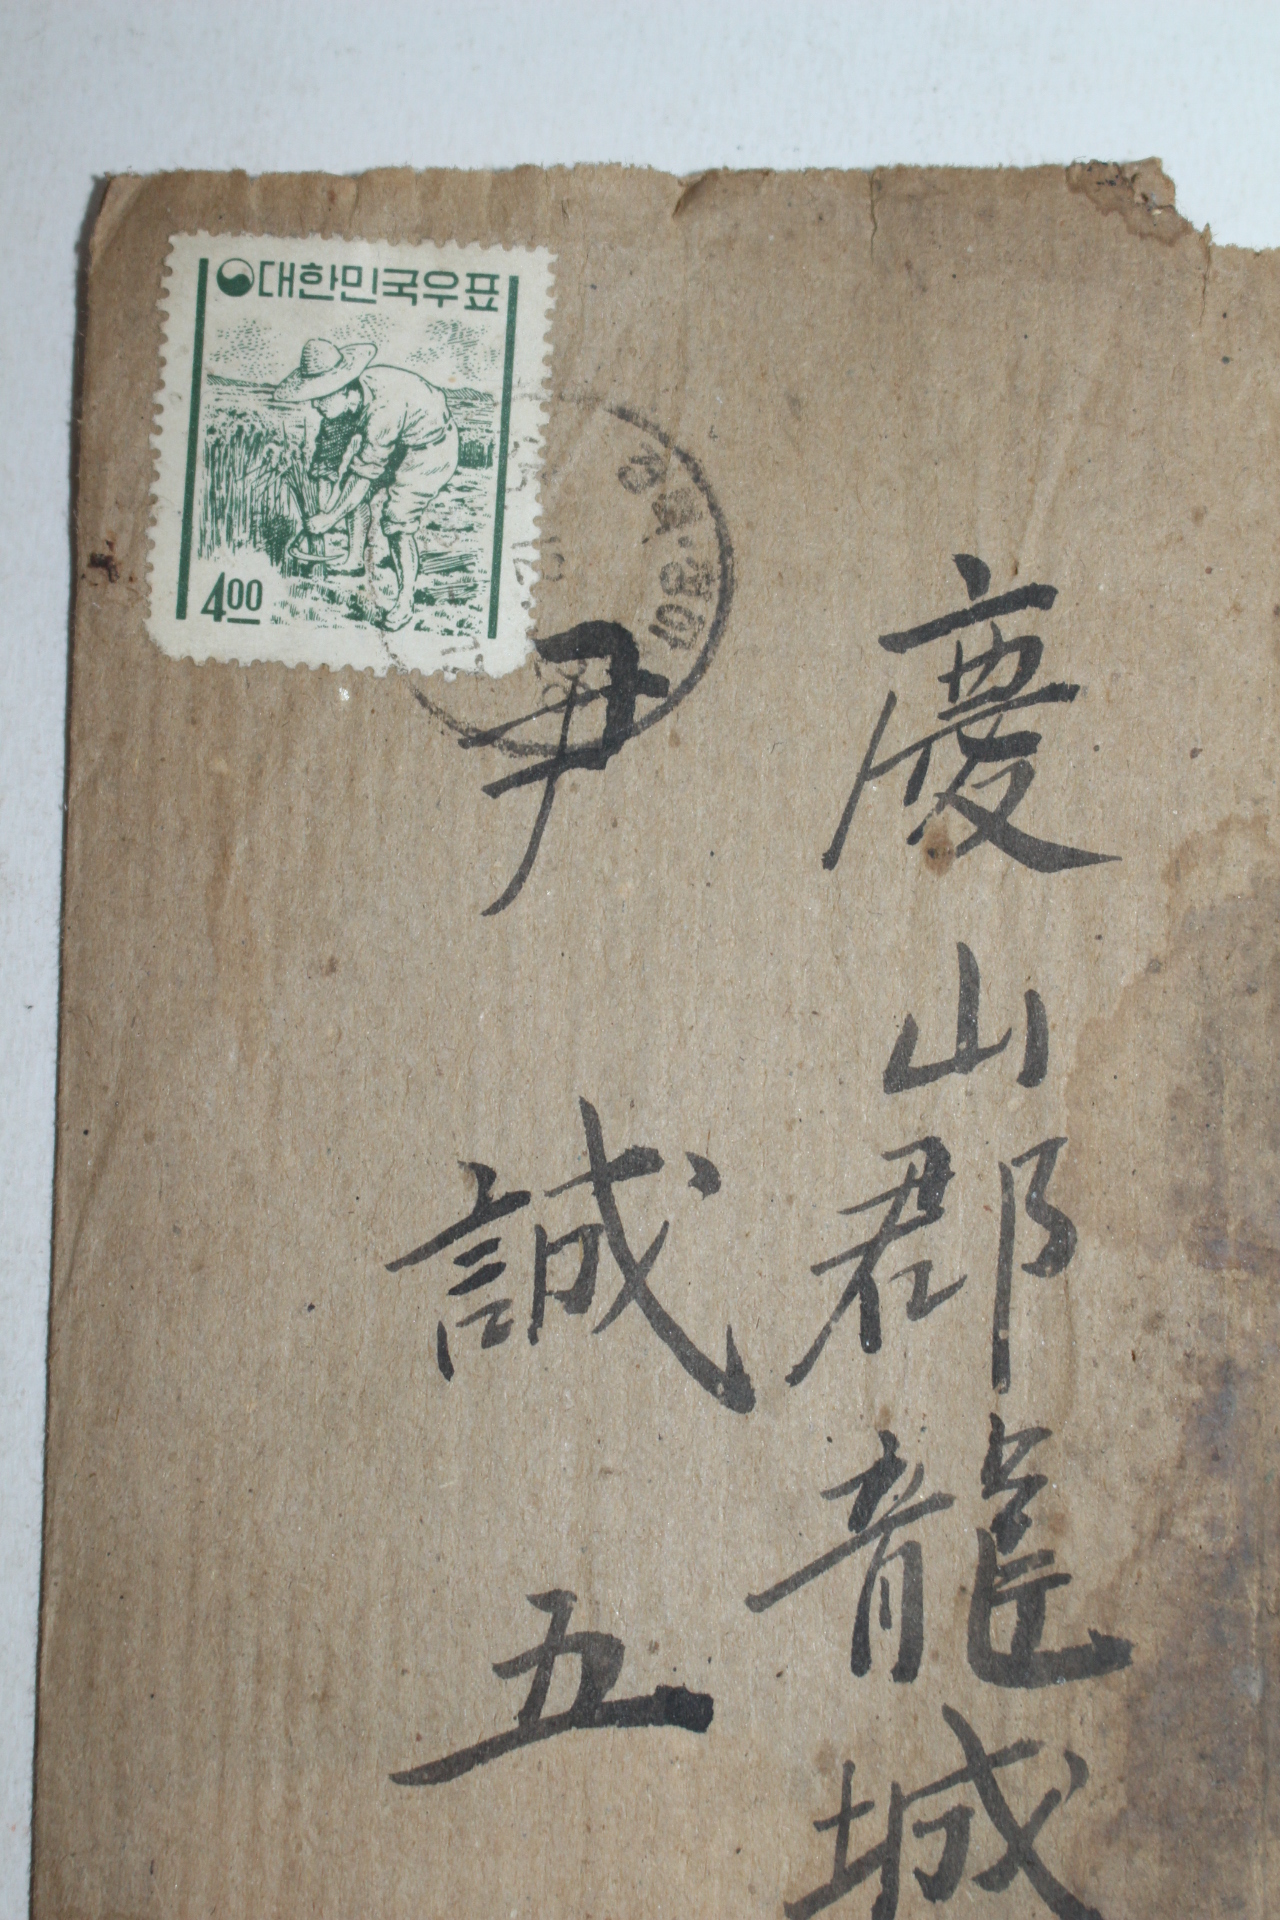 대한민국우표
400
慶山郡龍城
尹誠五